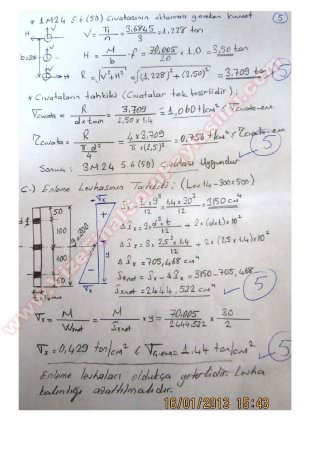 * 1M24 5.6 (SD) Civatasının aktarması gereken kuvvet
V = Ti/n = 3,6845/3 = 1,228 ton
H = M/b · f = 70.005/20 × 1,0 = 3,50 ton
R = √V²+H² = √(1,228)²+(3,50)² = 3.709 ton
* Civataların tahkiki (Civatalar tek tesirlidir);
= R/d×tmin = 3.709 = 1,060 t/cm² <
= R/π·d²/4 = 4×3.709/π×(2,5)² = 0,756 t/cm² <
Sonuç: 3M24 5.6 (SD) Civatası Uygundur.
C-) Enleme Levhasının Tahkiki; (Lev 14-300×500)
50
100
100
50
h=300
14mm
12 = 1,4×30³/12 = 3150 cm⁴
ΔIx = 3× d³×t/12 + 2×(d×t)×10²
ΔIx = 3× 2,5³×1.4/12 + 2×(2,5×1.4)×10²
ΔIx = 705,468 cm⁴
Ixnet = Ix - ΔIx = 3150-705,468
Ixnet = 2444.532 cm⁴
σx = M/Wnet = M/Ixnet × y = 70.005/2444.532 × 30/2
σx = 0,429 ton/cm² < σç-em = 1.44 ton/cm²
Enleme levhaları oldukça yeterlidir. Levha
kalınlığı azaltılmalıdır.
16/01/2013 15:43